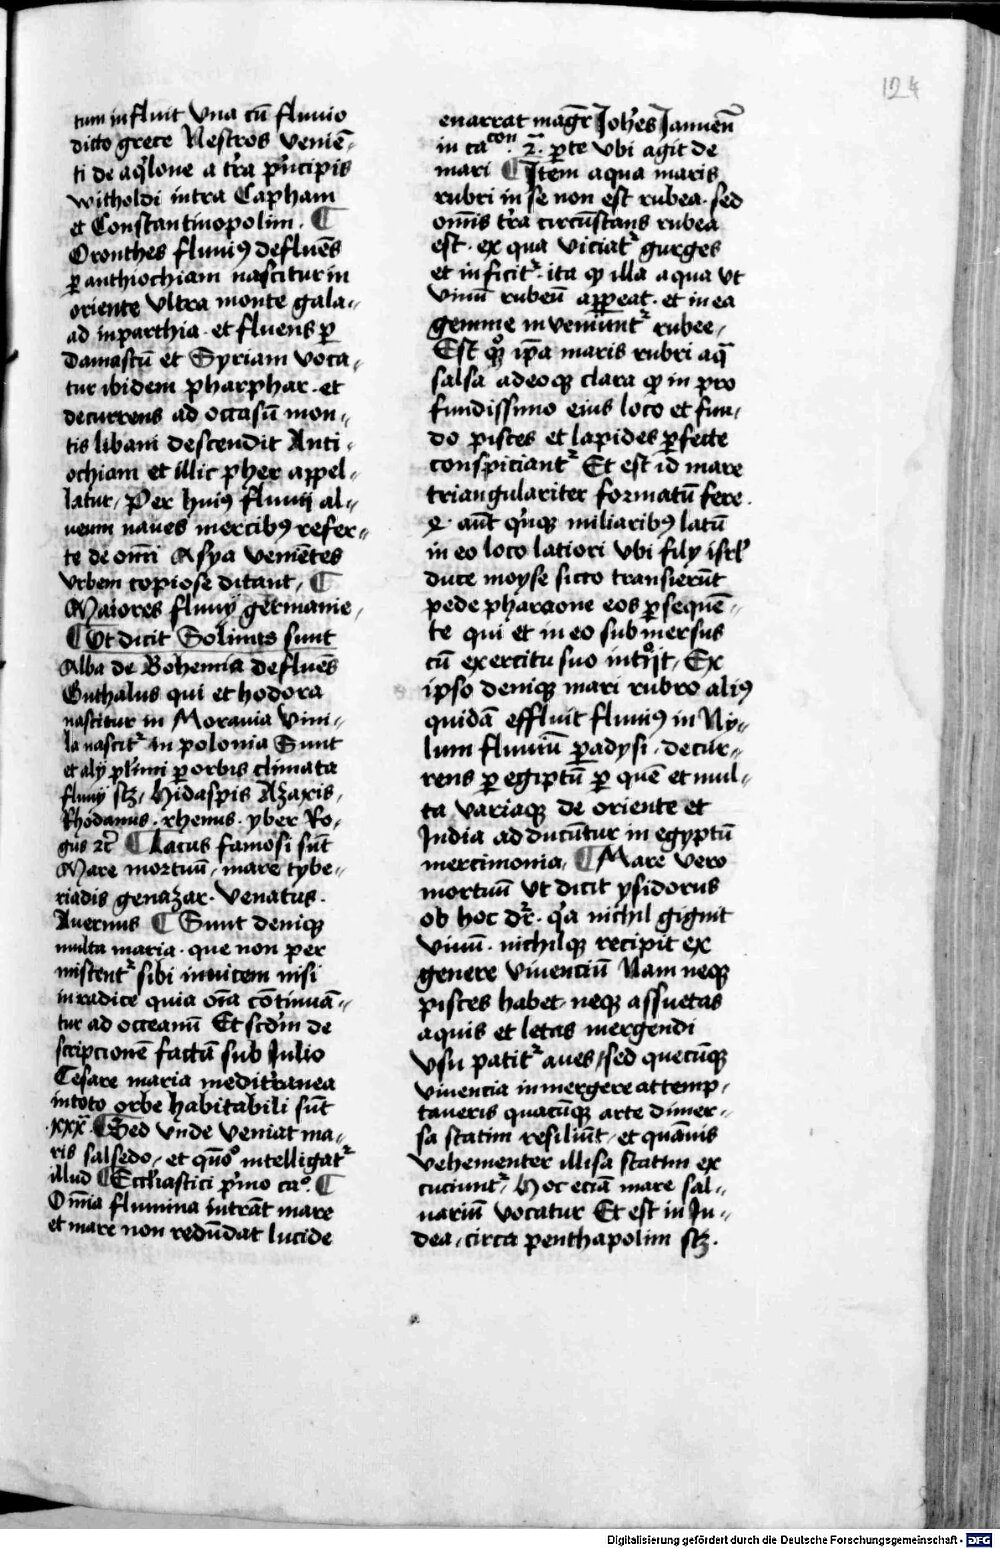 124
tum influit Vna cū fluuio
dicto grece Nestros veniē-
ti de aq̓lone a tr̄a pn̄cipis
witholdi intra Capham
et Constantinopolim. ¶
Oronthes fluuiꝰ defluēs
ꝑ anthiochiam nascitur in
oriente vltra monte gala-
ad in parthia · et fluens ꝑ
Damascū et Syriam voca-
tur ibidem pharphar · et
decurrens ad occasū mon-
tis libani descendit Anti-
ochiam et illic pher appel-
latur, Per huiꝰ fluuij al-
ueum naues mercibꝰ refer-
te de om̄i Asya veniētes
vrbem copiose ditant, ¶
Maiores fluuij germanie,
¶ Vt dicit Solinus sunt
Alba de Bohemia defluēs
Guthalus qui et hodora
nascitur in Morauia vini-
la nascitᷣ in polonia Sunt
et alij pl̄imi ꝑ orbis climata
fluuij sꝫ, hidaspis Aꝫaxis,
Rhodanus · rhenus · yber Ro-
gus ⁊c̄ ¶ Lacus famosi sūt
Mare mortuū, mare tybe-
riadis genaꝫar · Venatus ·
Auernus ¶ Sunt deniqꝫ
multa maria · que non per
miscentᷣ sibi inuicem nisi
in radice quia oīa cōtinuā-
tur ad occeanū Et scd̄m de
scripcionē factā sub Julio
Cesare maria meditr̄anea
in toto orbe habitabili sūt
·xxx· ¶ Sed vnde veniat ma-
ris salsedo, et quō intelligatᷣ
illud ¶ Eccl̄iastici pͥmo ca° · ¶
Omnia flumina intrāt mare
et mare non redūdat lucide
enarrat magr̄ Joh̄es Januen̄
in ca con · 2 · ꝑte vbi agit de
mari ¶ Item aqua maris
rubri in se non est rubea · sed
om̄is tr̄a circūstans rubea
est · ex qua viciatᷣ gurges
et inficitᷣ · ita ꝙ illa aqua vt
vinū rubeū appeat · et in ea
gemme inueniūntᷣ rubee,
Est qꝫ ip̄a maris rubri aq̄
salsa adeoqꝫ clara ꝙ in pro
fundissimo eius loco et fun-
do pisces et lapides ꝑfecte
conspiciantᷣ Et est id mare
triangulariter formatū fere ·
aūt qn̄qꝫ miliaribꝰ latū
in eo loco latiori vbi filij isrl̄
duce moyse sicco transierūt
pede pharaone eos ꝑsequē-
te qui et in eo submersus
cū exercitu suo intᷣijt, Ex
ipso deniqꝫ mari rubro aliꝰ
quidā effluit fluuiꝰ in Ny-
lum fluuiū ꝑadysi · decur-
rens ꝑ egiptū ꝑ quē et mul-
ta variaqꝫ de oriente et
India adducūtur in egyptū
mercimonia, ¶ Mare vero
mortuū vt dicit ysidorus
ob hoc dr̄ · qͥa nichil gignit
viuū · nichilqꝫ recipit ex
genere viuenciū Nam neqꝫ
pisces habet · neqꝫ assuetas
aquis et letas mergendi
vsu patitᷣ aues, sed quecūqꝫ
viuencia in mergere attemp-
taueris quacūqꝫ arte dimer-
sa statim resiliūt, et quāuis
vehementer illisa statim ex
cuciuntᷣ, Hoc eciā mare sal-
uariū vocatur Et est in Ju-
dea, circa penthapolim sꝫ ·
Digitalisierung gefördert durch die Deutsche Forschungsgemeinschaft - DFG